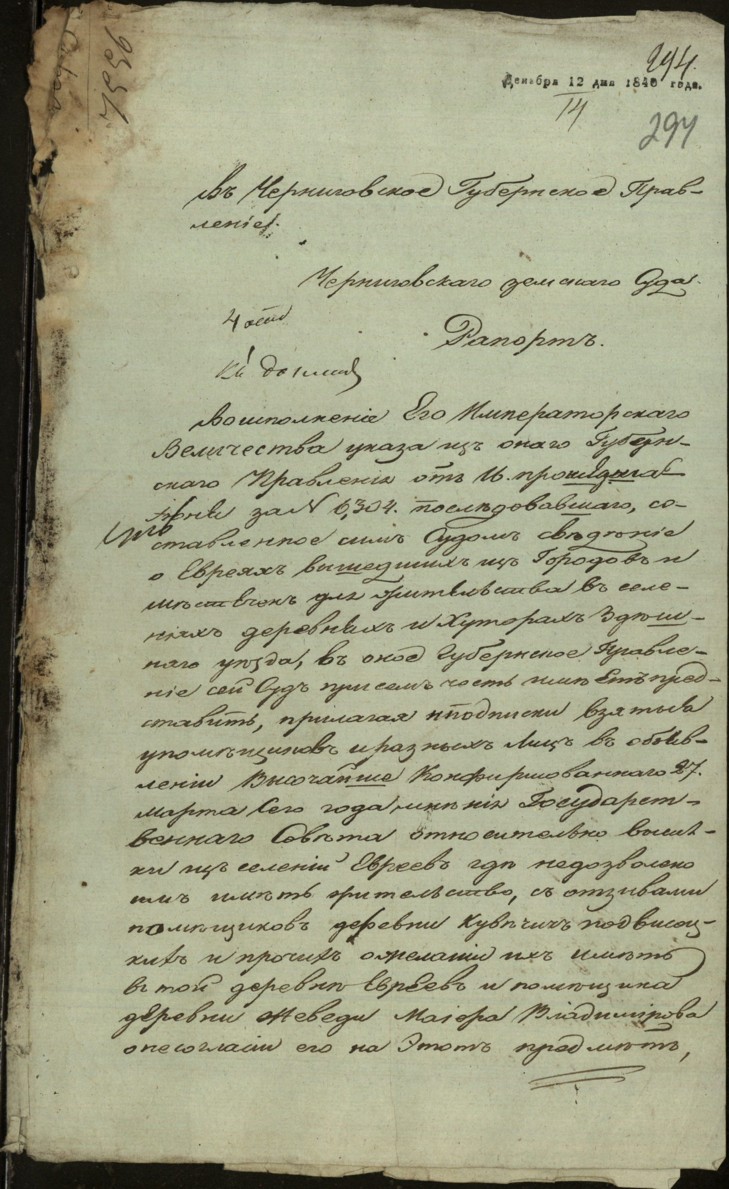 9556
294.
Декабря 12 дня 1840 года.
14
294
Въ Черниговское Губернское Прав-
леніе.
Черниговскаго земскаго Суда
Рапортъ.
Воисполненіе Его Императорскаго
Величества указа изъ онаго Губерн-
скаго Правленія отъ 16. прошедшаго
за № 6,304. послѣдовавшаго, со-
ставленное симъ Судомъ свѣдѣніе
о Евреяхъ вышедшихъ изъ Городовъ и
мѣстечекъ для жительства въ селе-
ніяхъ деревняхъ и Хуторахъ здѣш-
няго уѣзда, въ оное Губернское Правле-
ніе сей Судъ присемъ честь имѣетъ пред-
ставить, прилагая подписки взятыя
упомѣщиковъ иразныхъ лицъ въ объяв-
леніи Высочайше Конфирмованнаго 27.
Марта сего года мнѣнія Государст-
веннаго Совѣта относительно высыл-
ки изъ селеній Евреевъ гдѣ недозволено
имъ имѣть жительство, съ отзывами
помѣщиковъ деревни Кувѣчичъ
и прочихъ ожеланіи ихъ имѣть
втой деревнѣ Евреевъ и помѣщика
деревни Жеведи Маіора Владимірова
онесогласіи его на Этотъ предмѣтъ,